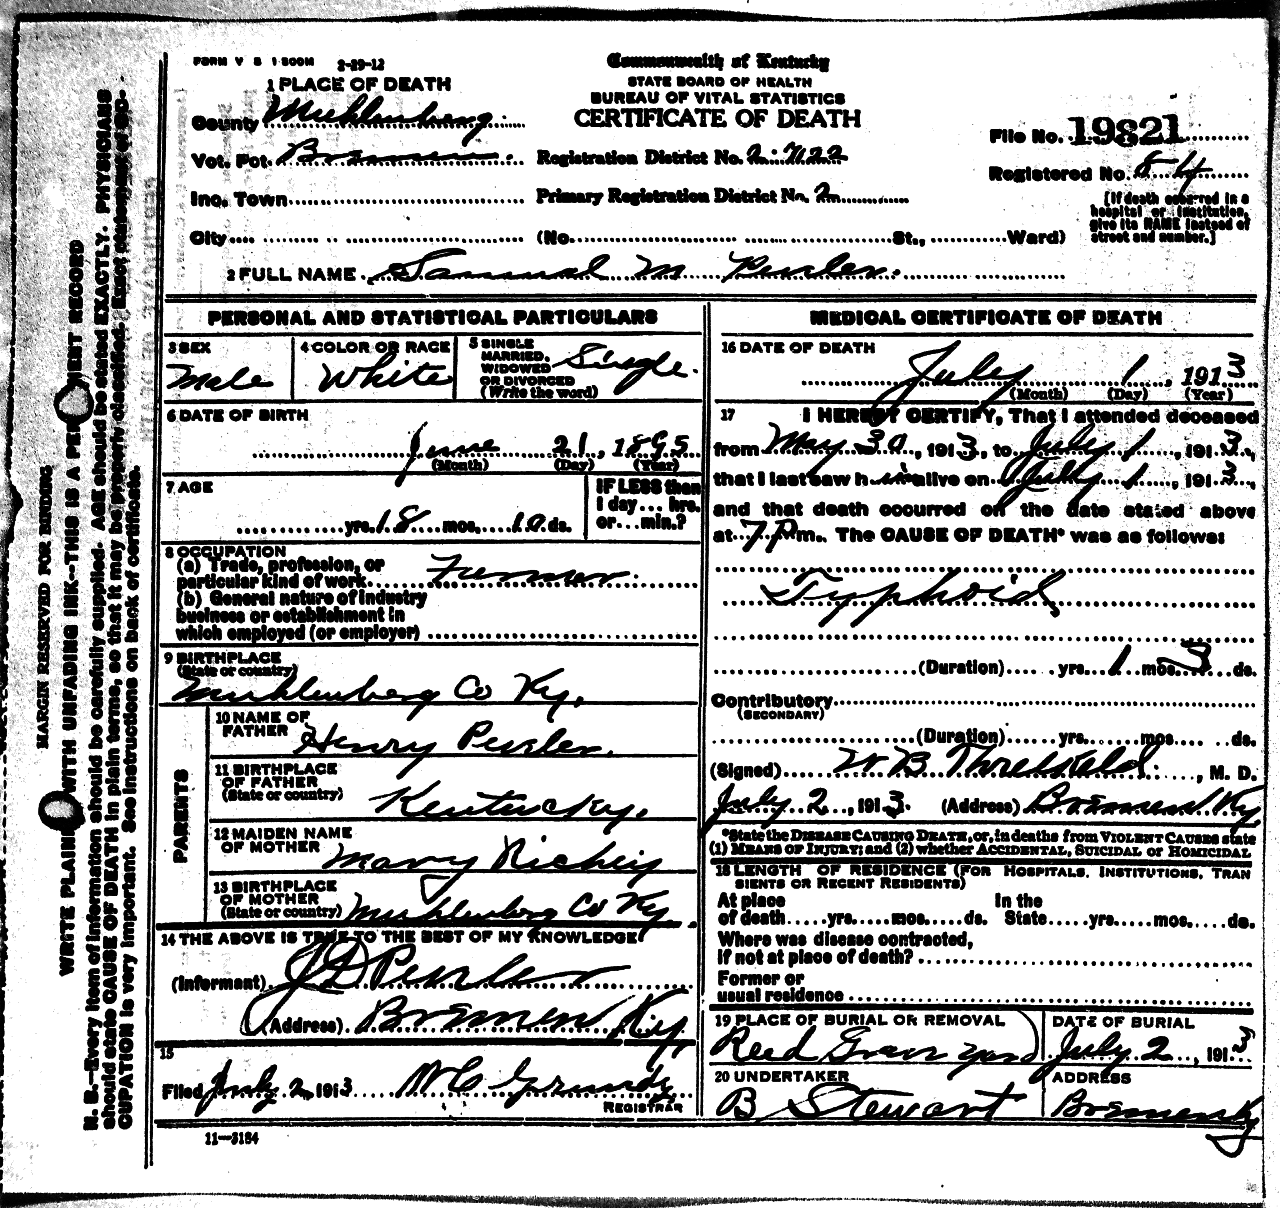 FORM V S 1 500M 2-29-12
Commonwealth of Kentucky
STATE BOARD OF HEALTH
BUREAU OF VITAL STATISTICS
CERTIFICATE OF DEATH
1 PLACE OF DEATH
County Muhlenberg
Vot. Pct. Bremen
Inc. Town
City (No. St., Ward)
Registration District No.
Primary Registration District No. 2
File No. 19821
Registered No. 84
[If death occurred in a
hospital or institution,
give its NAME instead of
street and number.]
2 FULL NAME Samuel M
PERSONAL AND STATISTICAL PARTICULARS
3 SEX
Male
4 COLOR OR RACE
White
5 SINGLE
MARRIED,
WIDOWED
OR DIVORCED
(Write the word)
Single
6 DATE OF BIRTH
June 21, 1895
(Month) (Day) (Year)
7 AGE
yrs. 18 mos. 10 ds.
IF LESS than
1 day... hrs.
or...min.?
8 OCCUPATION
(a) Trade, profession, or
particular kind of work Farmer
(b) General nature of industry
business or establishment in
which employed (or employer)
9 BIRTHPLACE
(State or country)
Muhlenberg Co Ky.
PARENTS
10 NAME OF
FATHER Henry
11 BIRTHPLACE
OF FATHER
(State or country)
Kentucky.
12 MAIDEN NAME
OF MOTHER Mary
13 BIRTHPLACE
OF MOTHER
(State or country) Muhlenberg Co Ky.
14 THE ABOVE IS TRUE TO THE BEST OF MY KNOWLEDGE
(Informant) J D
(Address) Bremen, Ky.
15
Filed July 2, 1913 Grundy
REGISTRAR
11-3184
MEDICAL CERTIFICATE OF DEATH
16 DATE OF DEATH
July 1, 1913
(Month) (Day) (Year)
17 I HEREBY CERTIFY, That I attended deceased
from May 30, 1913, to July 1, 1913,
that I last saw him alive on July 1, 1913,
and that death occurred on the date stated above
at 7 P m. The CAUSE OF DEATH* was as follows:
Typhoid
(Duration) yrs. 1 mos. 3 ds.
Contributory
(SECONDARY)
(Duration) yrs. mos. ds.
(Signed) W B Threlkeld, M. D.
July 2, 1913. (Address) Bremen, Ky
*State the DISEASE CAUSING DEATH, or, in deaths from VIOLENT CAUSES state
(1) MEANS OF INJURY; and (2) whether ACCIDENTAL, SUICIDAL or HOMICIDAL
18 LENGTH OF RESIDENCE (FOR HOSPITALS, INSTITUTIONS, TRAN
SIENTS OR RECENT RESIDENTS)
At place In the
of death yrs. mos. ds. State yrs. mos. ds.
Where was disease contracted,
if not at place of death?
Former or
usual residence
19 PLACE OF BURIAL OR REMOVAL
Reed Grave yard
DATE OF BURIAL
July 2, 1913
20 UNDERTAKER
B Stewart
ADDRESS
Bremen Ky
MARGIN RESERVED FOR BINDING
WRITE PLAINLY WITH UNFADING INK—THIS IS A PERMANENT RECORD
N. B.—Every item of information should be carefully supplied. AGE should be stated EXACTLY. PHYSICIANS
should state CAUSE OF DEATH in plain terms, so that it may be properly classified. Exact statement of OC-
CUPATION is very important. See instructions on back of certificate.